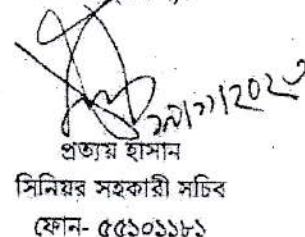 প্রত্যয় হাসান
সিনিয়র সহকারী সচিব
ফোন- ৫৫১০১১৮১